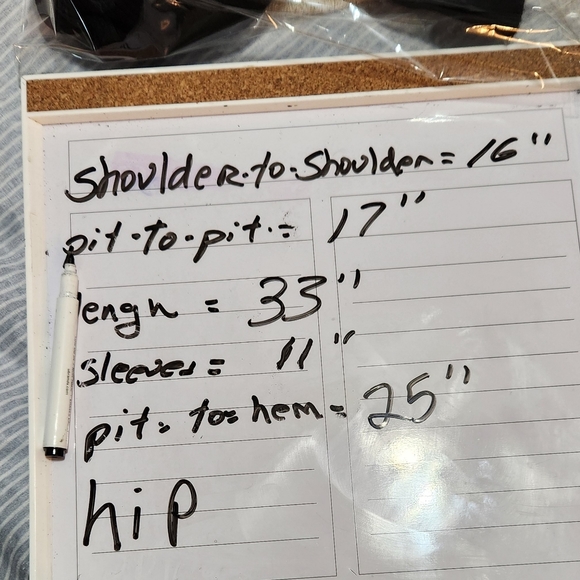 shoulder-to-shoulder = 16"
pit-to-pit = 17"
lengh = 33"
sleeves = 11"
pit-to-hem = 25"
hip